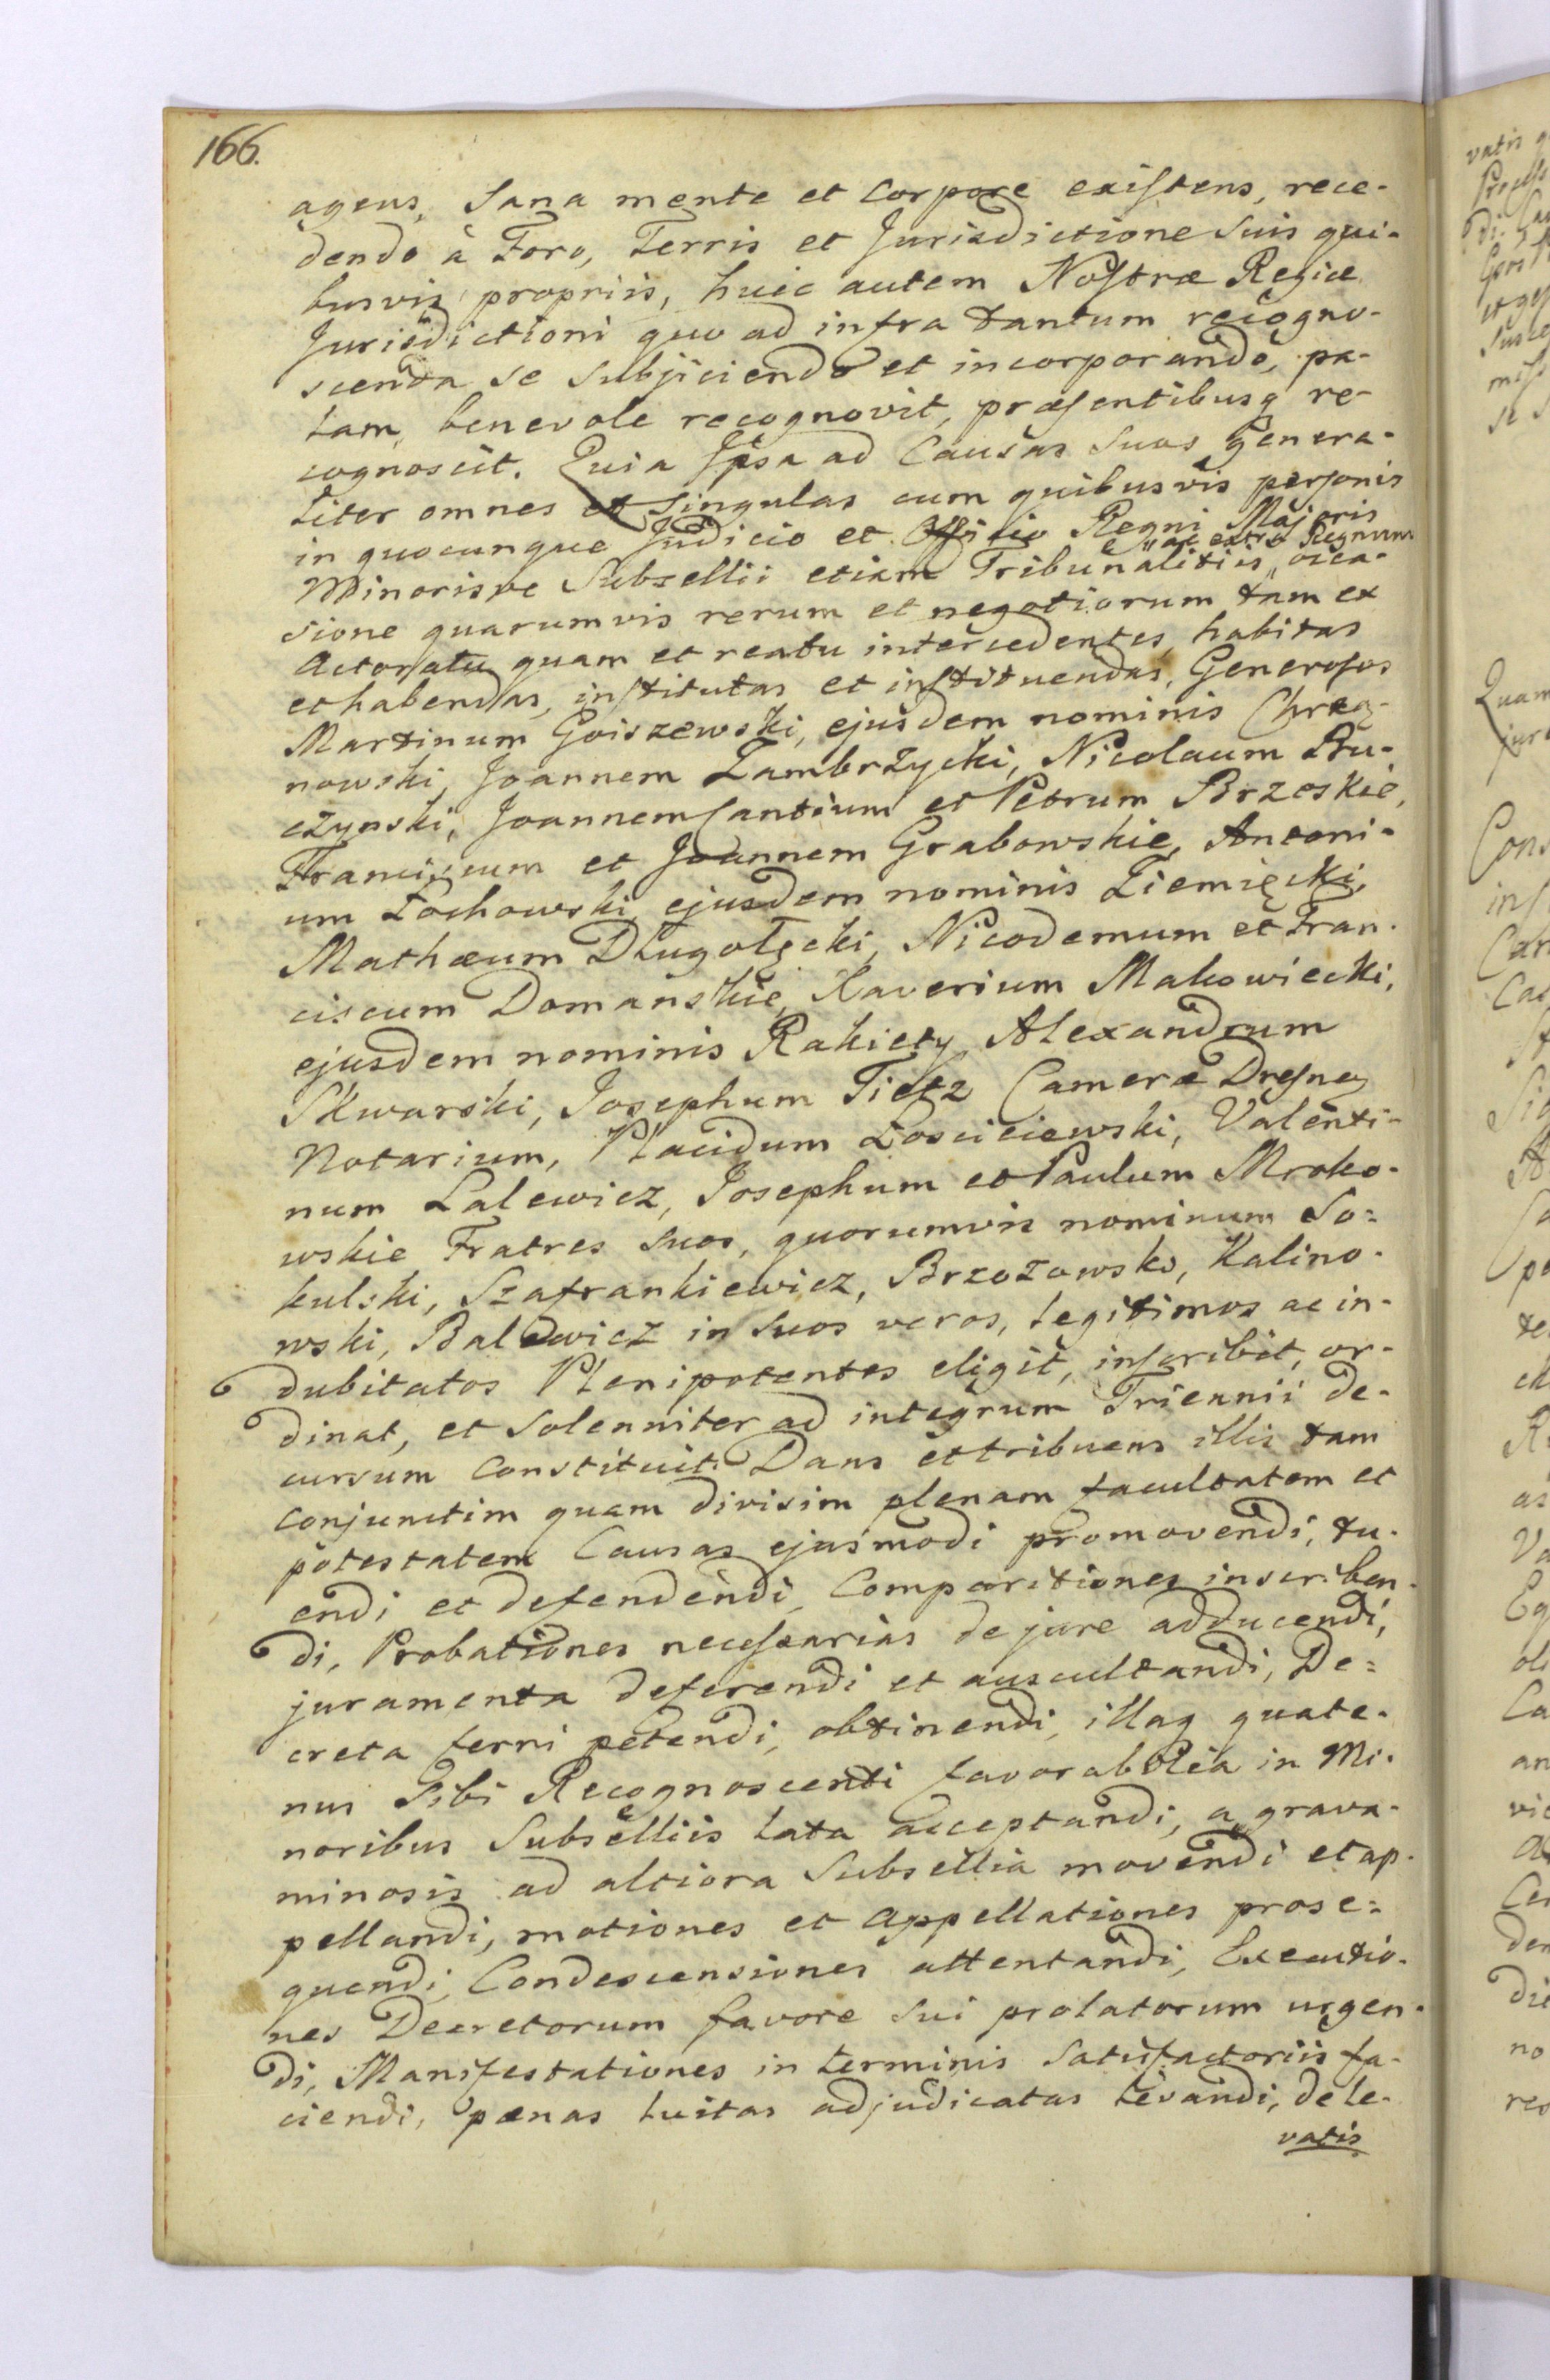 166.
agens, Sana mente et Corpore existens, rece-
dendo à Foro, Terris et Jurisdictione Suis qui-
busvis propriis, huic autem Nostræ Regiæ
Jurisdictioni quo ad infra tantum recogno-
scenda se Subjiciendo et incorporando, pa-
lam, benevole recognovit, præsentibusq re-
cognoscit. Quia Ipsa ad Causas Suas genera-
liter omnes et Singulas cum quibusvis personis
in quocunque Judicio et Officio Regni Majoris
Minorisve Subsellii etiam Tribunalitiis, ac extra Regnum occa-
sione quarumvis rerum et negotiorum tam ex
Actoratu quam et reatu intercedentes, habitas
et habendas, institutas et instituendas, Generosos
Martinum Goiszewski, ejusdem nominis Chrza-
nowski, Joannem Zambrzycki, Nicolaum Bu-
czynski, Joannem Cantium et Petrum Brzoskie,
Franciscum et Joannem Grabowskie, Antoni-
um Łochowski, ejusdem nominis Ziemięcki,
Mathæum Długołęcki, Nicodemum et Fran-
ciscum Domanskie, Xaverium Makowiecki,
ejusdem nominis Rakiety, Alexandrum
Skwarski, Josephum Tietz Cameræ
Notarium, Placidum Łosciciewski, Valenti-
num Lalewicz, Josephum et Paulum Mroko-
wskie Fratres Suos, quorumvis nominum So-
kulski, Szafrankiewicz, Brzozowski, Kalino-
wski, Balewicz in Suos veros, legitimos ac in-
dubitatos Plenipotentes eligit, inscribit, or-
dinat, et Solenniter ad integrum Triennii de-
cursum Constituit. Dans et tribuens illis tam
Conjunctim quam divisim plenam facultatem et
potestatem Causas ejusmodi promovendi, tu-
endi et defendendi, Comparitiones inscriben-
di, Probationes necessarias de jure adducendi,
juramenta deferendi et auscultandi, De-
creta ferri petendi, obtinendi, illaq quate-
nus Sibi Recognoscenti favorabilia in Mi-
noribus Subselliis lata acceptandi, a grava-
minosis ad altiora Subsellia movendi et ap-
pellandi, motiones et Appellationes prose-
quendi, Condescensiones attentandi, Executio-
nes Decretorum favore Sui prolatorum urgen-
di, Manifestationes in terminis Satisfactoriis fa-
ciendi, pænas luitas adjudicatas levandi, de le-
vatis